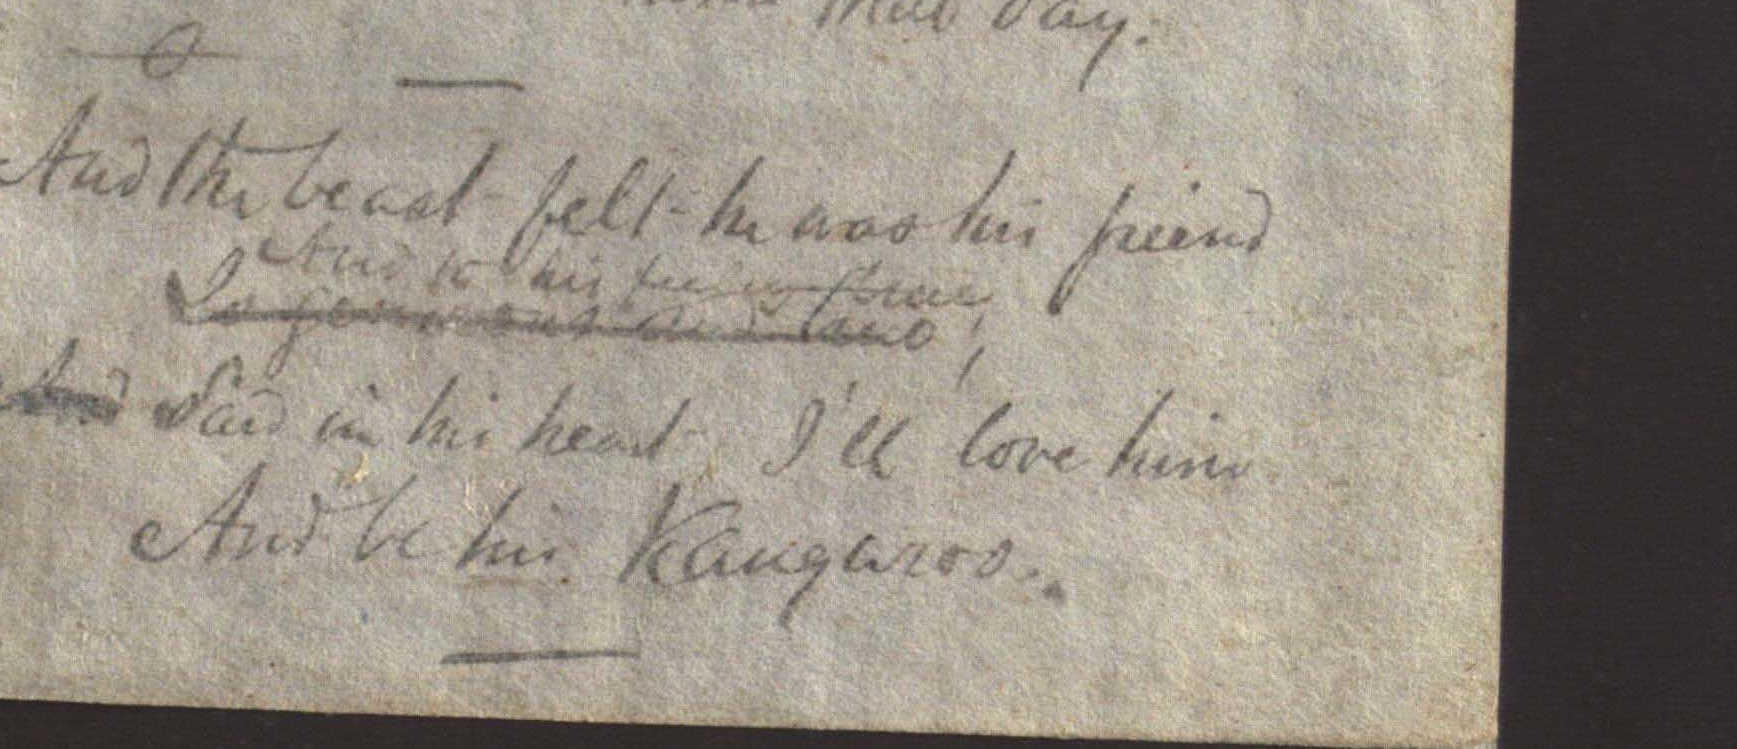 that day.
And the beast felt he was his friend
And to his
So generous and
And Said in his heart I'll love him
And be his Kangaroo.